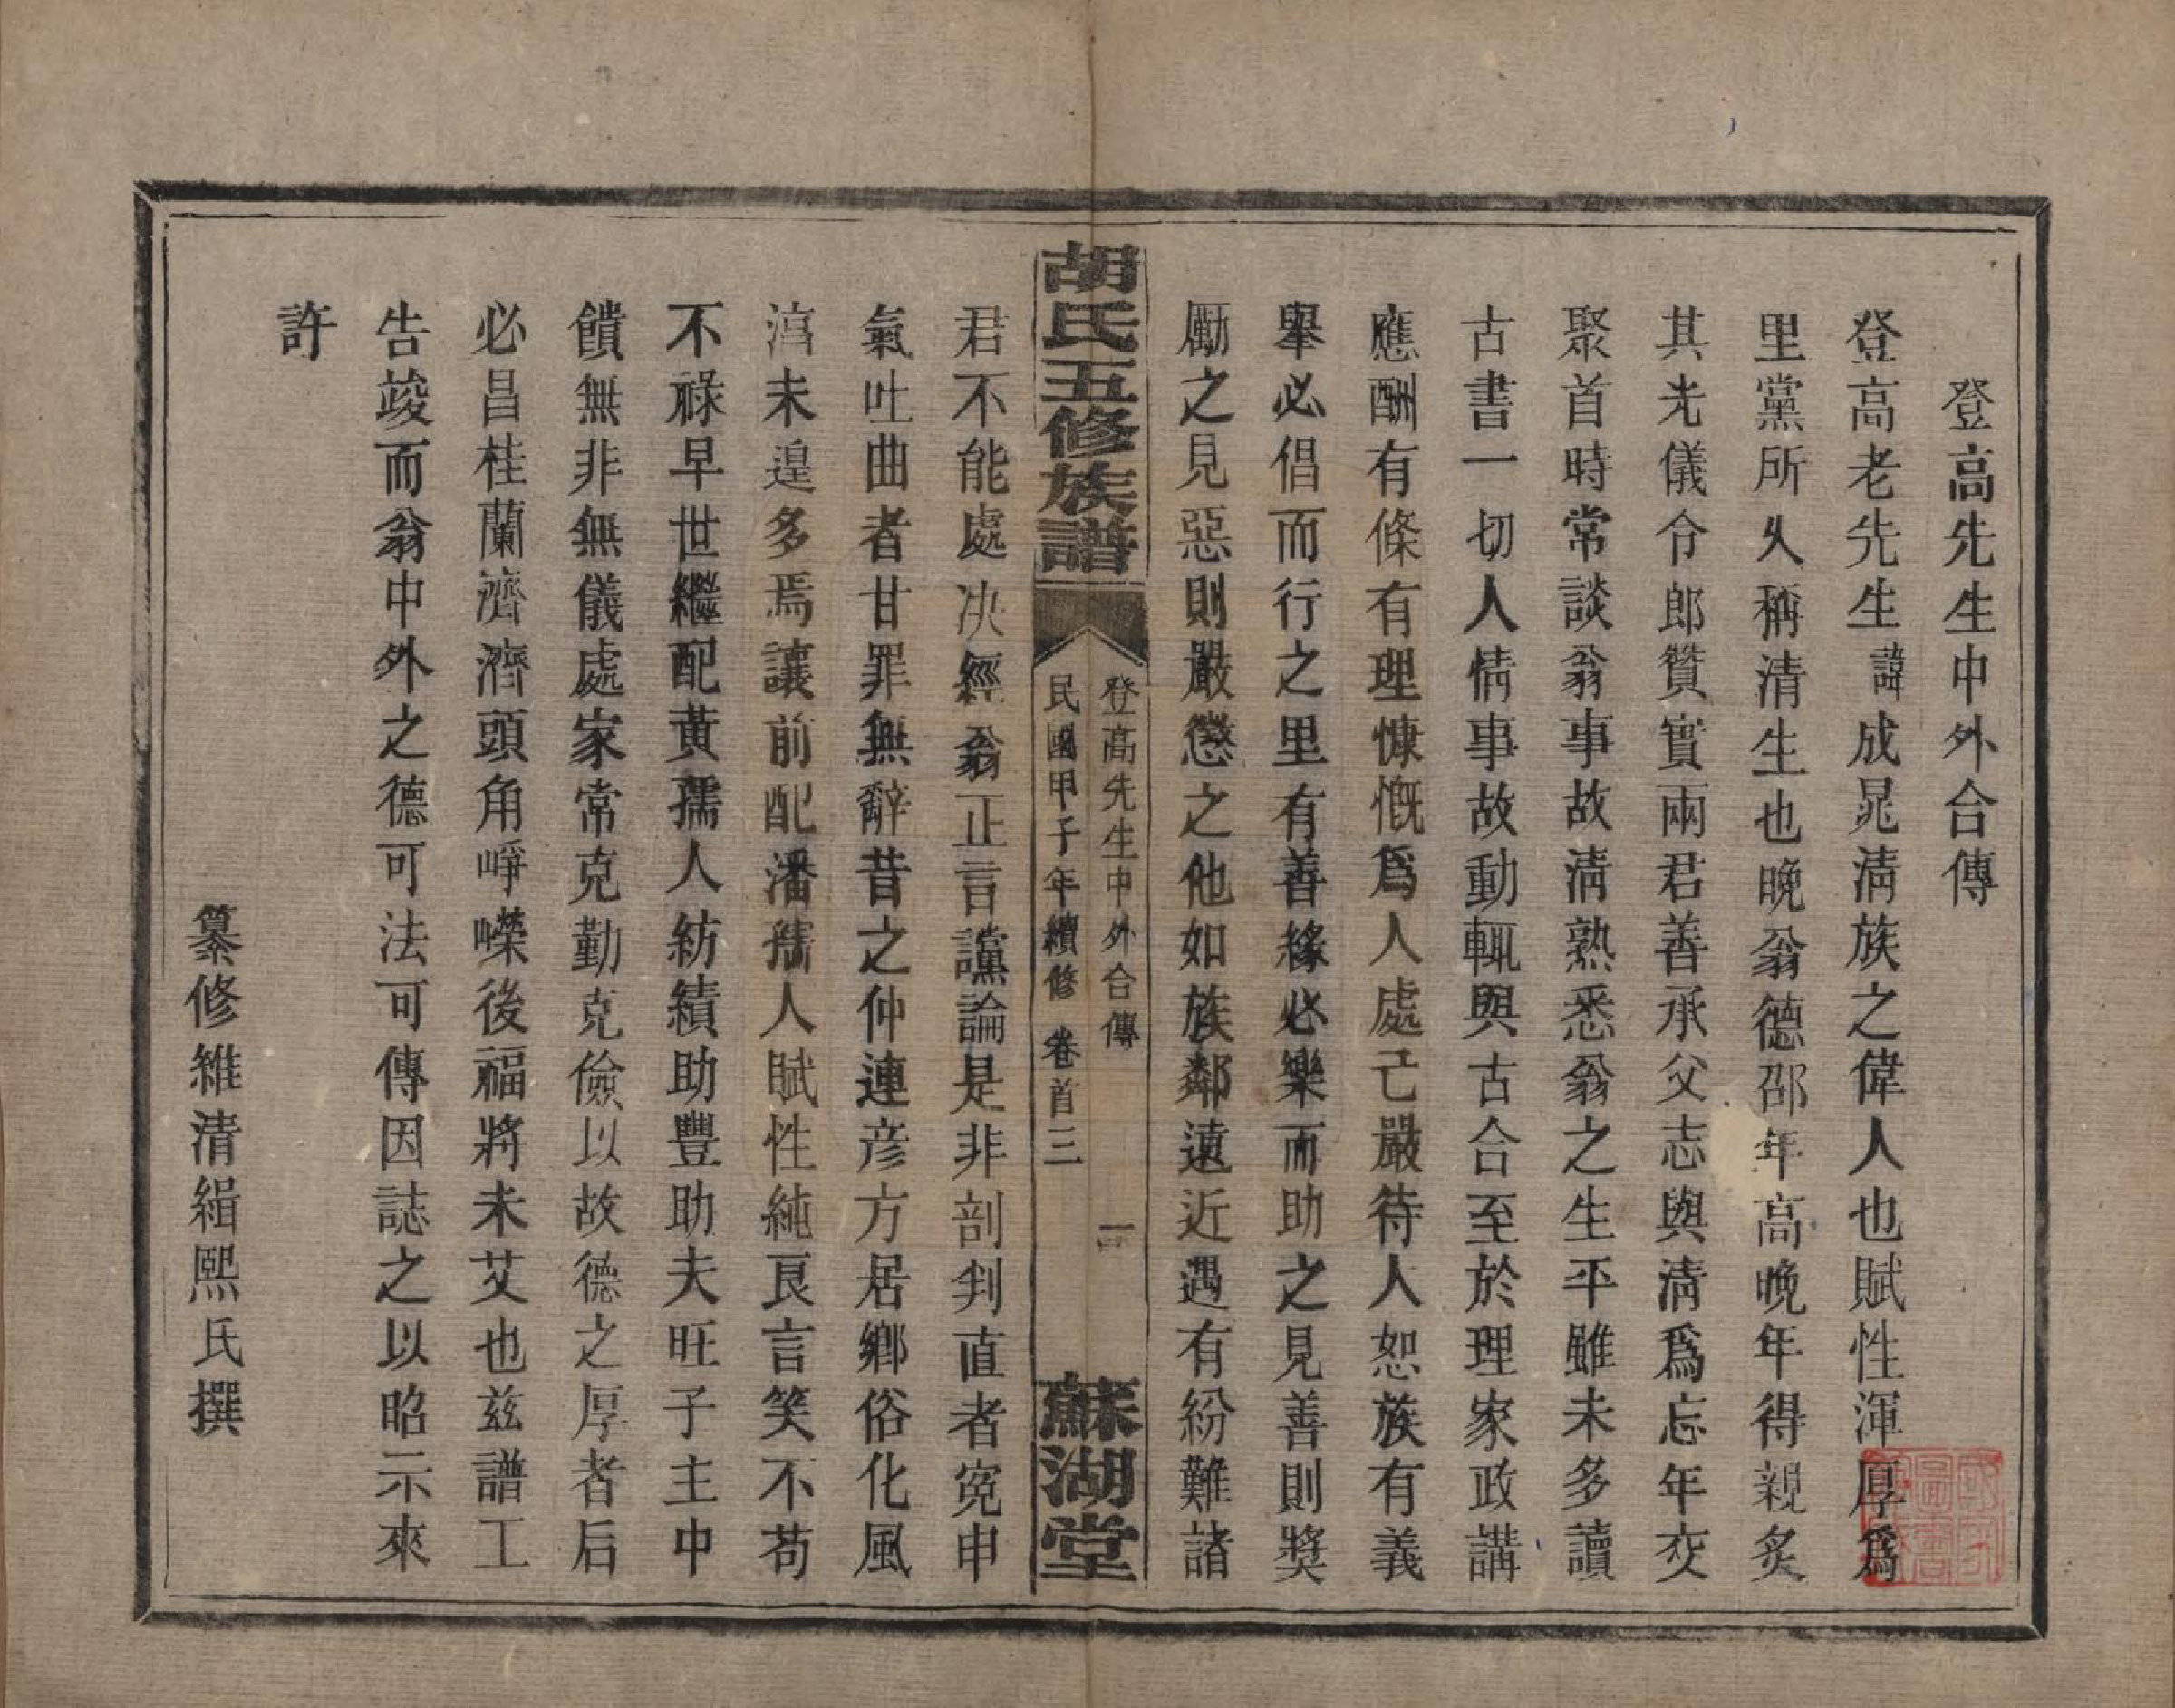 登高先生中外合傳
登高老先生諱成晁淸族之偉人也賦性渾厚爲
里黨所久稱清生也晚翁德邵年高晚年得親炙
其光儀令郎贊實兩君善承父志與淸爲忘年交
聚首時常談翁事故淸熟悉翁之生平雖未多讀
古書一切人情事故動輒與古合至於理家政講
應酬有條有理慷慨爲人處己嚴待人恕族有義
舉必倡而行之里有善緣必樂而助之見善則獎
勵之見惡則嚴懲之他如族鄰遠近遇有紛難諸
胡氏五修族譜
登高先生中外合傳 一
民國甲子年續修 卷首三
蘇湖堂
君不能處决經翁正言讜論是非剖判直者寃申
氣吐曲者甘罪無辭昔之仲連彦方居鄉俗化風
淳未遑多焉讓前配潘孺人賦性純良言笑不苟
不祿早世繼配黃孺人紡績助豐助夫旺子主中
饋無非無儀處家常克勤克儉以故德之厚者后
必昌桂蘭濟濟頭角崢嶸後福將未艾也兹譜工
告竣而翁中外之德可法可傳因誌之以昭示來
許
纂修維清緝熙氏撰